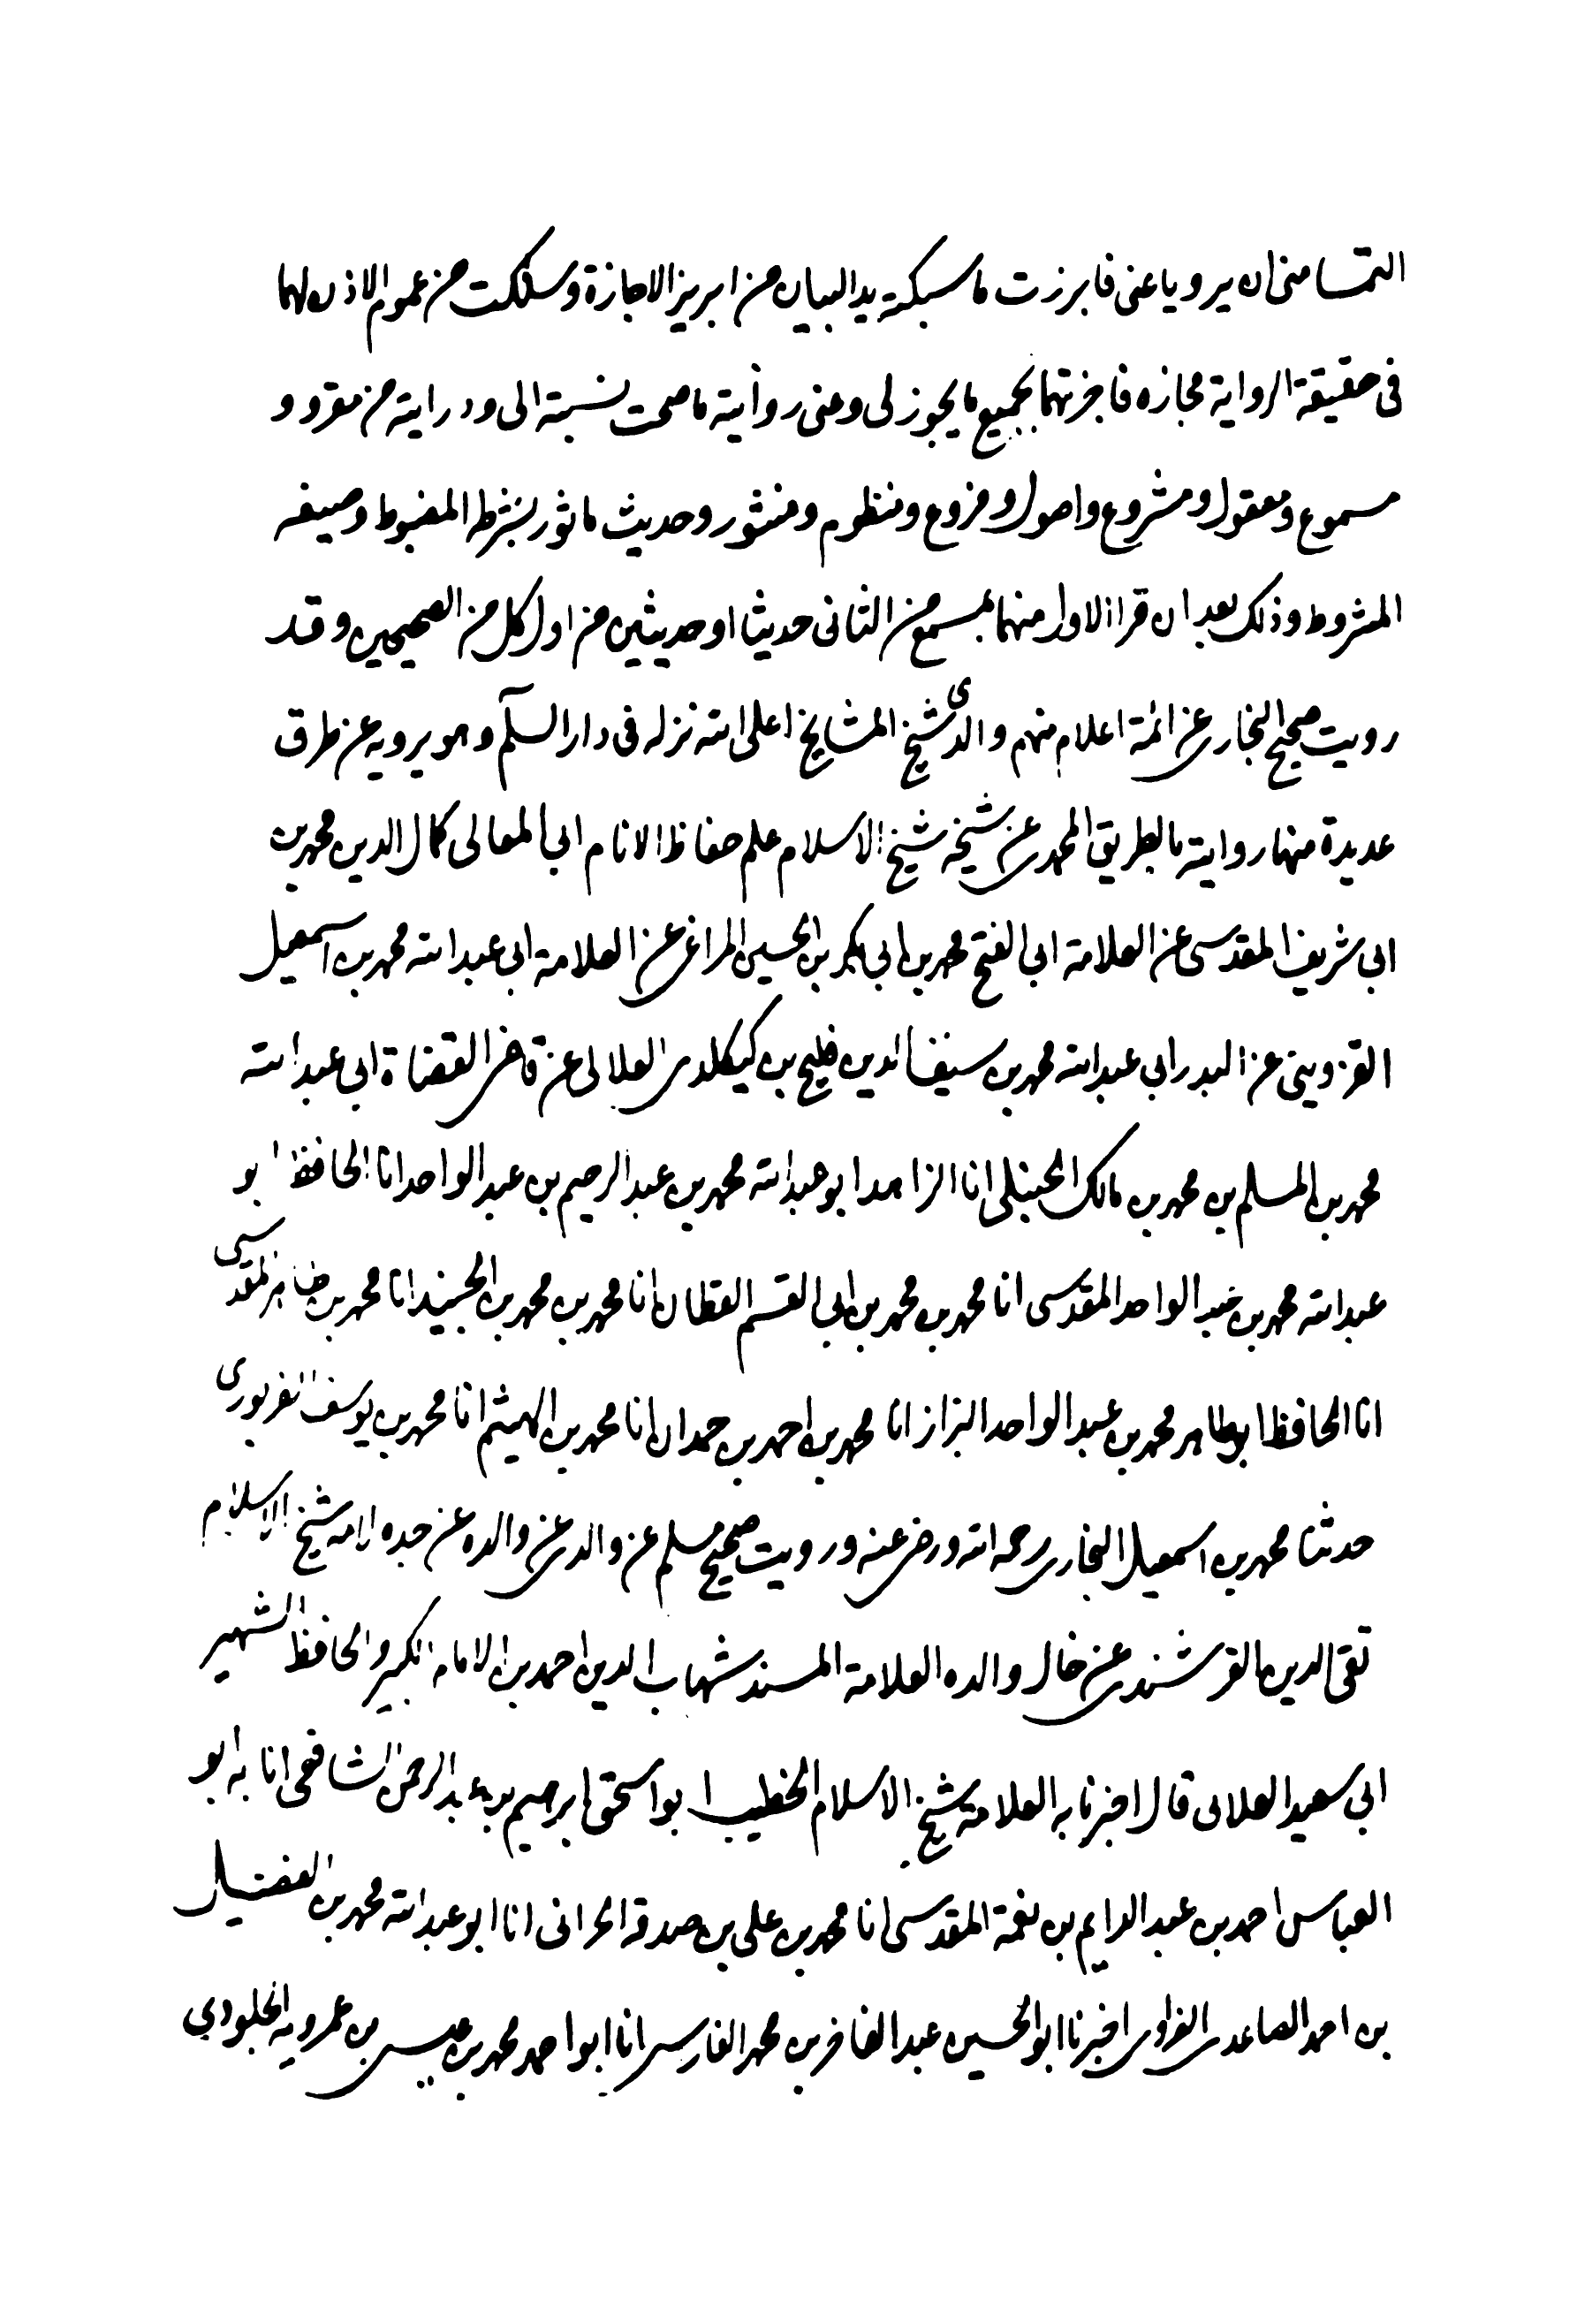 التمسا منى ان يرويا عنى فابرزت ما سبكته يد البيان من ابريز الاجازة وسلكت من عموم الاذن لهما
فى حقيقة الرواية مجازه فاجزتهما بجميع ما يجوز لى وعنى رواية ما صحت نسبته الى ودرايته من مقروء و
مسموع ومعقول ومشروع واصول وفروع ومنظوم ومنثور وحديث ماثور بشرطه المضبوط وصيغه
المشروط وذلك بعد ان قرا الاول منهما بمسمع من الثانى حديثا او حديثين من اول كل من الصحيحين وقد
رويت صحيح البخارى عن ائمة اعلام منهم والدى شيخ المشايخ اعلى الله نزله فى دار السلم وهو يرويه عن طرق
عديدة منها روايته بالطريق المحمدى عن شيخه شيخ الاسلام علم حفاظ الانام ابى المعالى كمال الدين محمد بن
ابى شريف المقدسى عن العلامة ابى الفتح محمد بن ابى بكر بن الحسين المراغى عن العلامة ابى عبد الله محمد بن اسمعيل
القزوينى عن البدر ابى عبد الله محمد بن سيف الدين فليح بن كيكلدى العلالى عن قاضى القضاة ابى عبد الله
محمد بن المسلم بن محمد بن مالك الحنبلى انا الزاهد ابو عبد الله محمد بن عبد الرحيم بن عبد الواحد انا الحافظ ابو
عبد الله محمد بن عبد الواحد المقدسى انا محمد بن محمد بن ابى القسم القطان انا محمد بن محمد بن الجنيد انا محمد بن طاهر المقدسى
انا الحافظ ابو طاهر محمد بن عبد الواحد البزاز انا محمد بن احمد بن حمدان انا محمد بن الهيثم انا محمد بن يوسف الفربورى
حدثنا محمد بن اسمعيل البخارى رحمه الله ورضى عنه ورويت صحيح مسلم عن والدى عن والده عن جده لامه شيخ الاسلام
تقى الدين القرقشندى عن خال والده العلامة المسند شهاب الدين احمد بن الامام الكبير والحافظ الشهير
ابى سعيد العلائى قال اخبرنا به العلامة شيخ الاسلام الخطيب ابو اسحق ابرهيم بن عبد الرحمن الشافعى انا به ابو
العباس احمد بن عبد الدايم بن نعمة المقدسى انا محمد بن على بن صدقه الحرانى انا ابو عبد الله محمد بن الفضيل
بن احمد الصاعدى الفراوى اخبرنا ابو الحسين عبد الغافر بن محمد الفارسى انا ابو احمد محمد بن عيسى بن عمرويه الجلودى